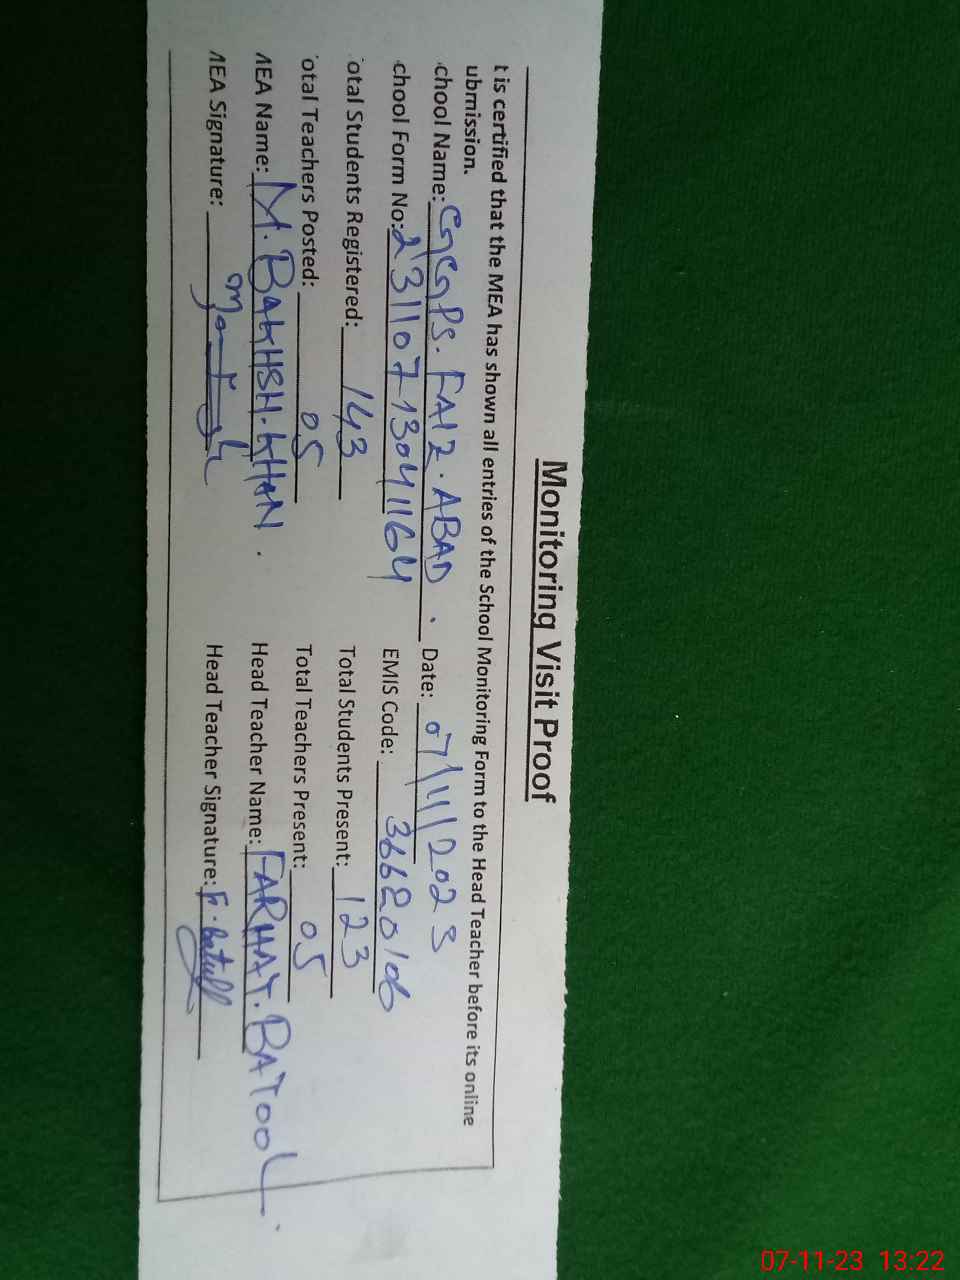 Monitoring Visit Proof
t is certified that the MEA has shown all entries of the School Monitoring Form to the Head Teacher before its online
ubmission.
chool Name: GGPS. FAIZ. ABAD. Date: 07/11/2023
chool Form No: 231107130411664 EMIS Code: 36620106
otal Students Registered: 143 Total Students Present: 123
otal Teachers Posted: 05 Total Teachers Present: 05
MEA Name: M. BAKHSH. KHAN. Head Teacher Name: FARHAT. BATOOL.
MEA Signature: Head Teacher Signature: F. Batull
07-11-23 13:22